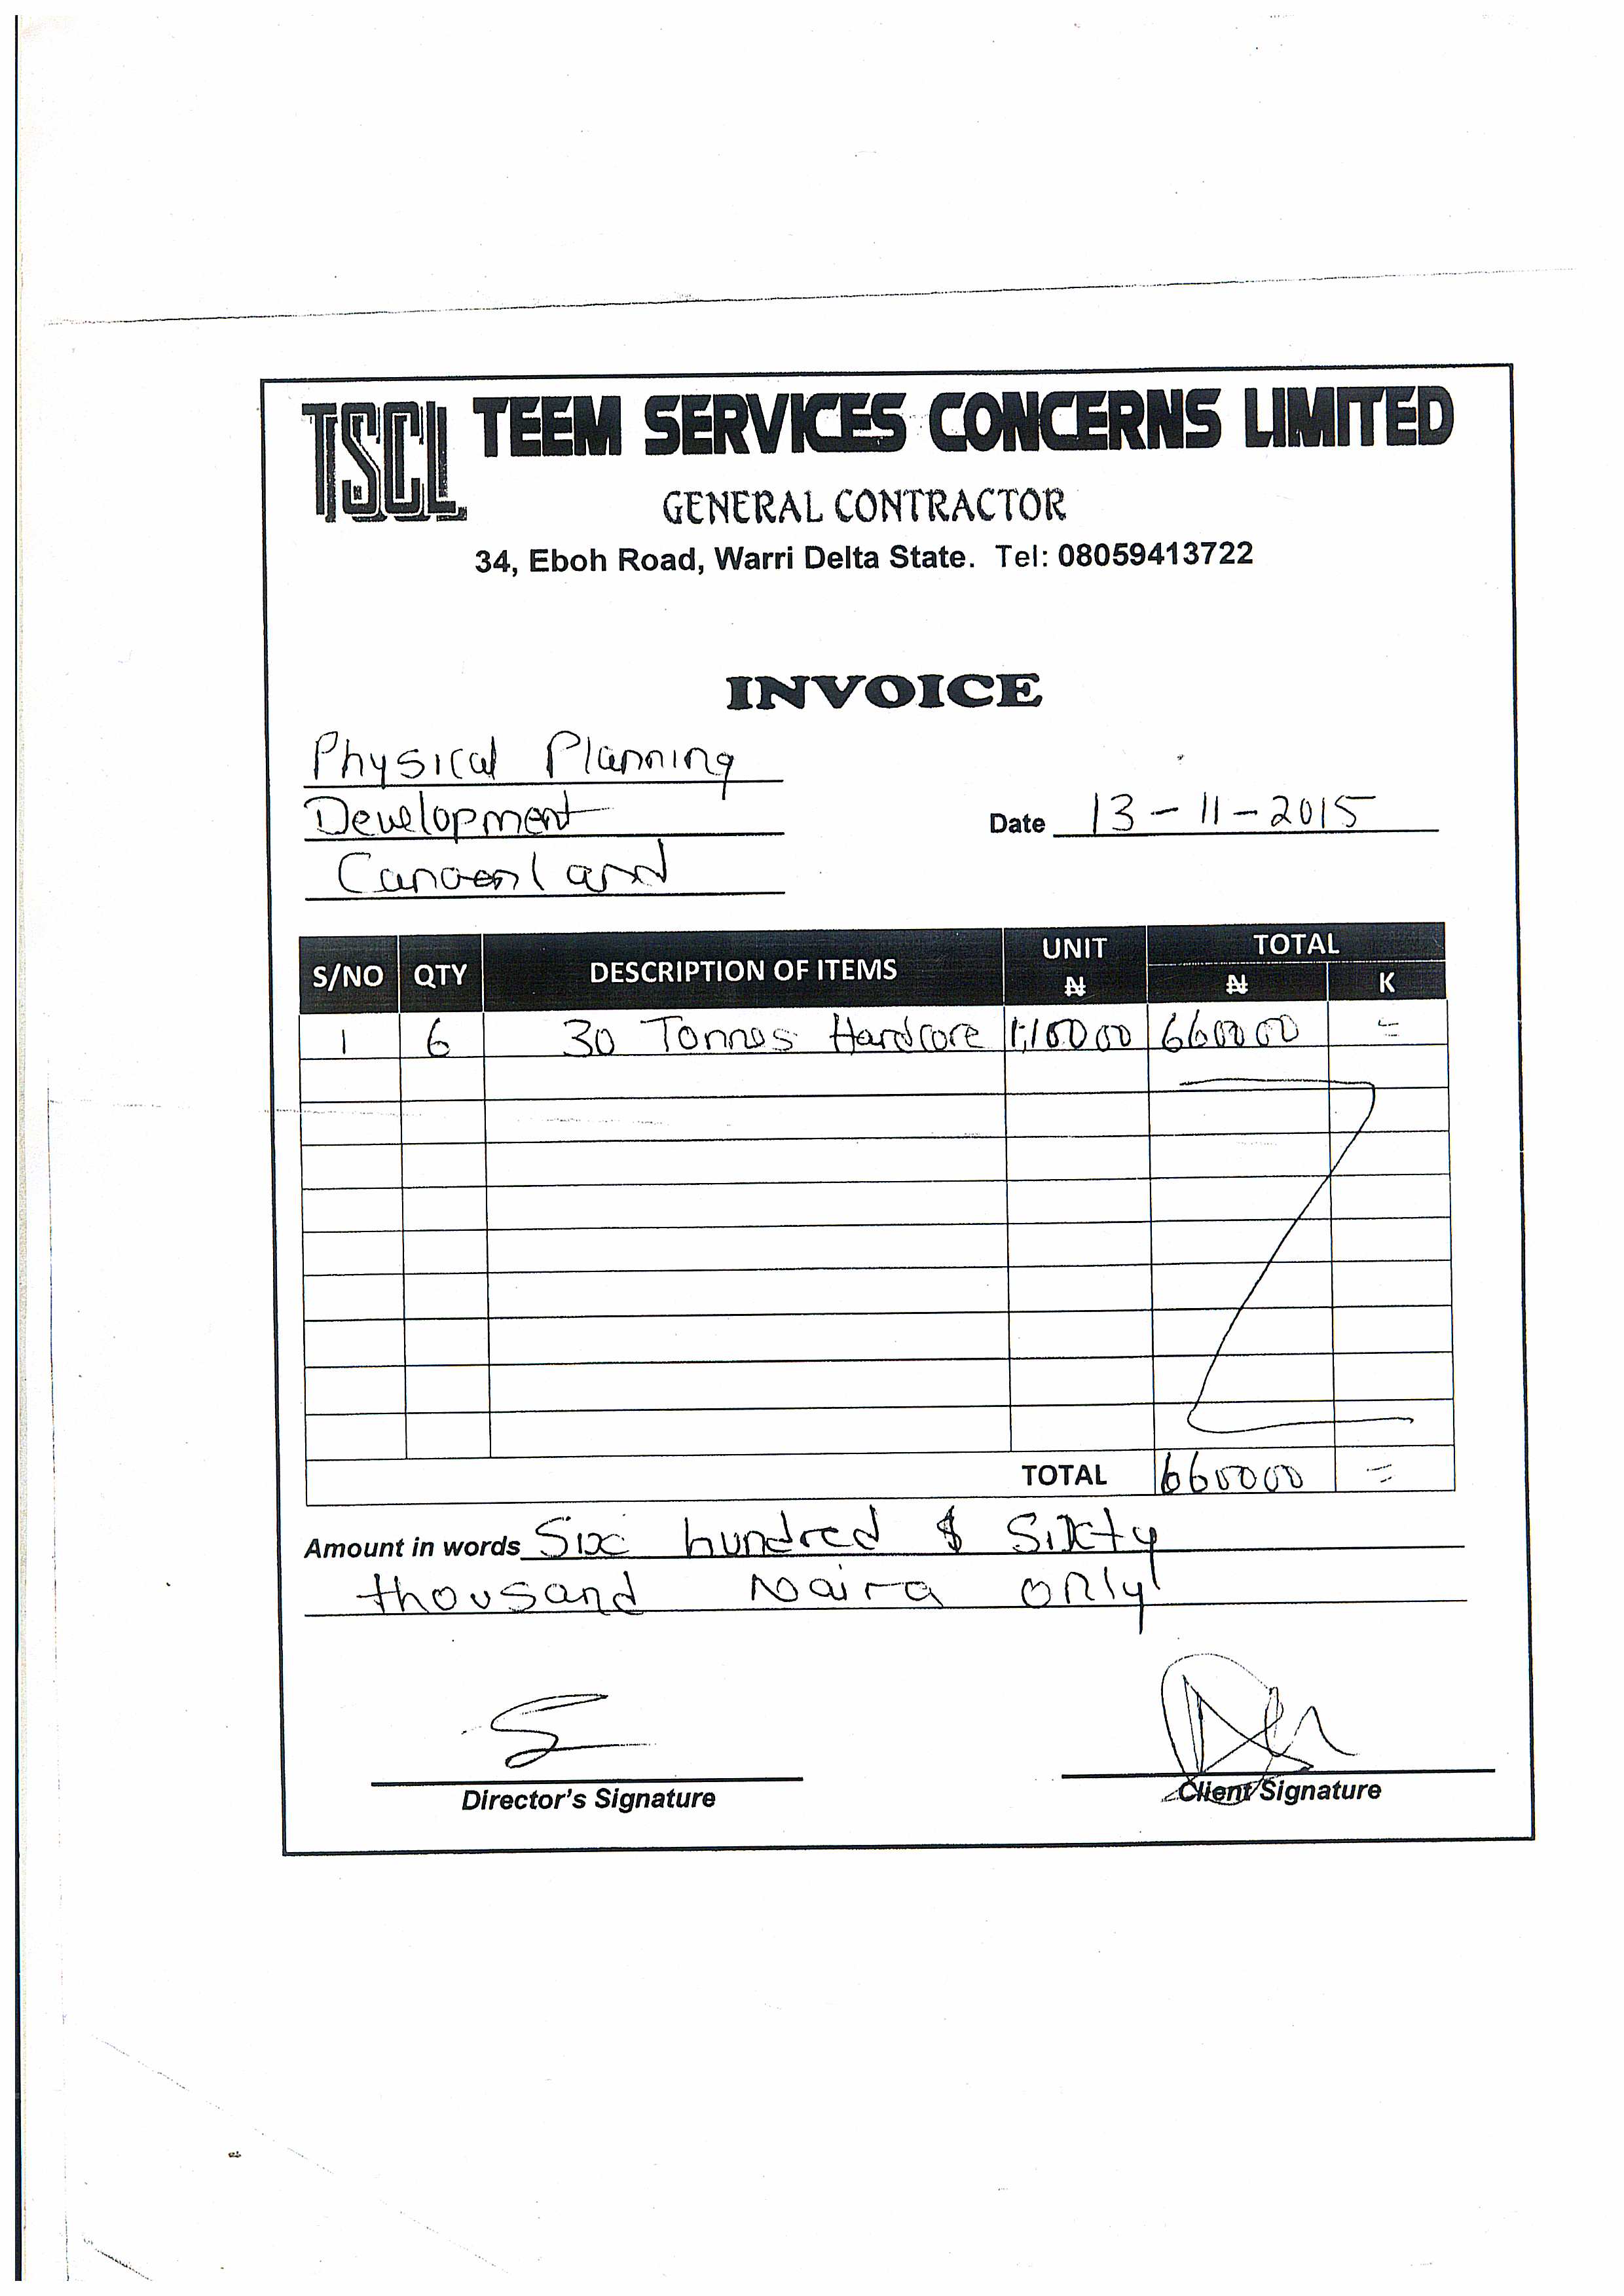 TSCL TEEM SERVICES CONCERNS LIMITED
GENERAL CONTRACTOR
34, Eboh Road, Warri Delta State. Tel: 08059413722
INVOICE
Physical Planning
Development
Date 13-11-2015
Canaanland
S/NO QTY DESCRIPTION OF ITEMS UNIT ₦ TOTAL ₦ K
1 6 30 Tonnes Hardcore 110000 660000 =
TOTAL 660000 =
Amount in words Six hundred & Sixty
thousand Naira only
Director's Signature Client Signature